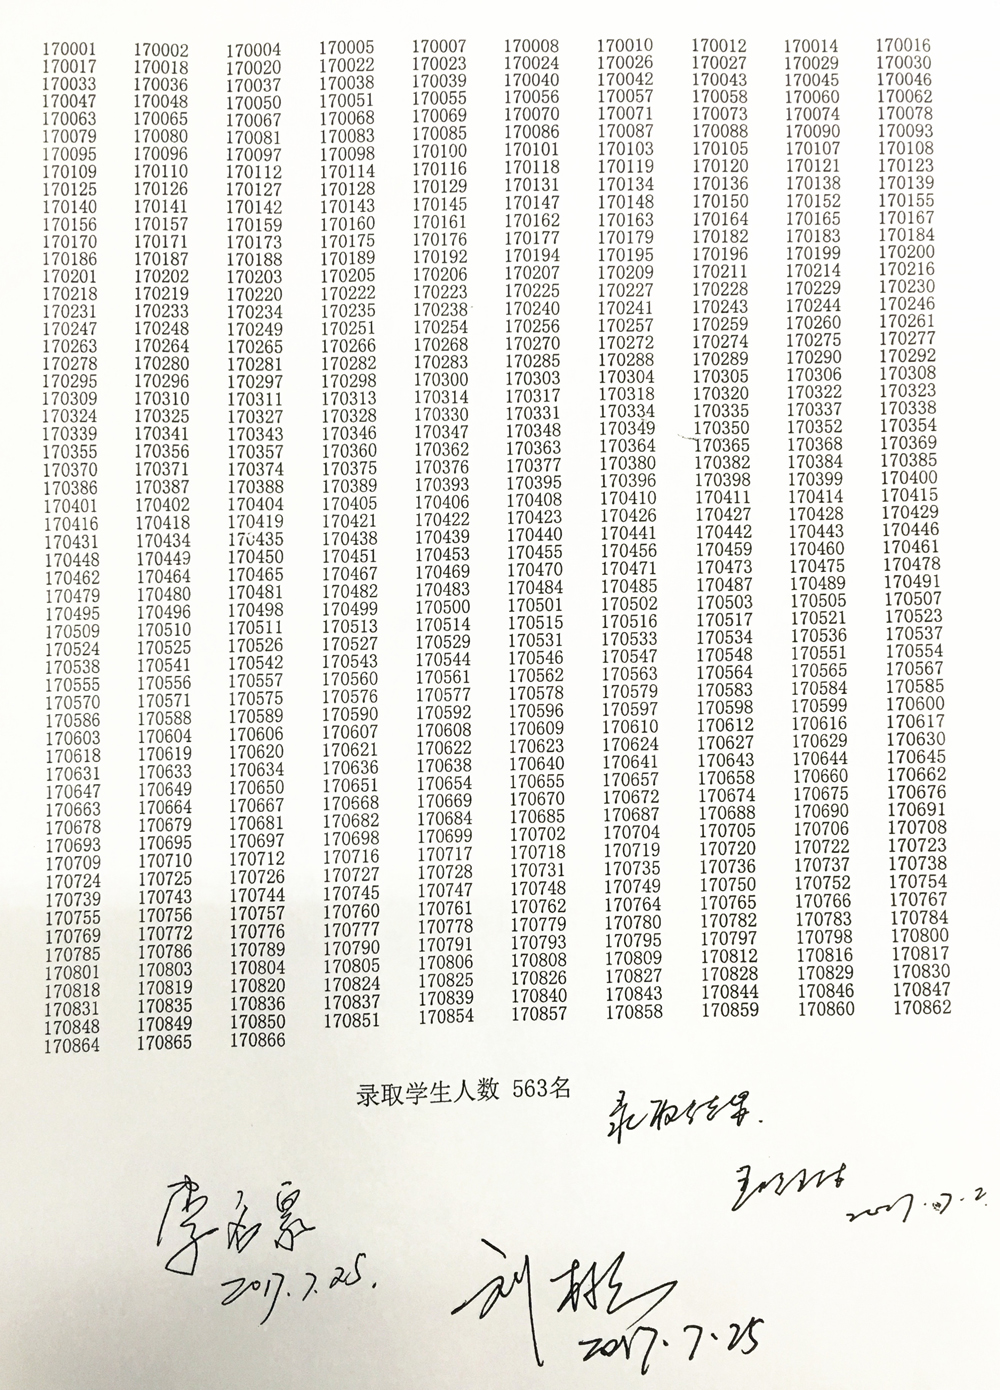 170001 170002 170004 170005 170007 170008 170010 170012 170014 170016
170017 170018 170020 170022 170023 170024 170026 170027 170029 170030
170033 170036 170037 170038 170039 170040 170042 170043 170045 170046
170047 170048 170050 170051 170055 170056 170057 170058 170060 170062
170063 170065 170067 170068 170069 170070 170071 170073 170074 170078
170079 170080 170081 170083 170085 170086 170087 170088 170090 170093
170095 170096 170097 170098 170100 170101 170103 170105 170107 170108
170109 170110 170112 170114 170116 170118 170119 170120 170121 170123
170125 170126 170127 170128 170129 170131 170134 170136 170138 170139
170140 170141 170142 170143 170145 170147 170148 170150 170152 170155
170156 170157 170159 170160 170161 170162 170163 170164 170165 170167
170170 170171 170173 170175 170176 170177 170179 170182 170183 170184
170186 170187 170188 170189 170192 170194 170195 170196 170199 170200
170201 170202 170203 170205 170206 170207 170209 170211 170214 170216
170218 170219 170220 170222 170223 170225 170227 170228 170229 170230
170231 170233 170234 170235 170238 170240 170241 170243 170244 170246
170247 170248 170249 170251 170254 170256 170257 170259 170260 170261
170263 170264 170265 170266 170268 170270 170272 170274 170275 170277
170278 170280 170281 170282 170283 170285 170288 170289 170290 170292
170295 170296 170297 170298 170300 170303 170304 170305 170306 170308
170309 170310 170311 170313 170314 170317 170318 170320 170322 170323
170324 170325 170327 170328 170330 170331 170334 170335 170337 170338
170339 170341 170343 170346 170347 170348 170349 170350 170352 170354
170355 170356 170357 170360 170362 170363 170364 170365 170368 170369
170370 170371 170374 170375 170376 170377 170380 170382 170384 170385
170386 170387 170388 170389 170393 170395 170396 170398 170399 170400
170401 170402 170404 170405 170406 170408 170410 170411 170414 170415
170416 170418 170419 170421 170422 170423 170426 170427 170428 170429
170431 170434 170435 170438 170439 170440 170441 170442 170443 170446
170448 170449 170450 170451 170453 170455 170456 170459 170460 170461
170462 170464 170465 170467 170469 170470 170471 170473 170475 170478
170479 170480 170481 170482 170483 170484 170485 170487 170489 170491
170495 170496 170498 170499 170500 170501 170502 170503 170505 170507
170509 170510 170511 170513 170514 170515 170516 170517 170521 170523
170524 170525 170526 170527 170529 170531 170533 170534 170536 170537
170538 170541 170542 170543 170544 170546 170547 170548 170551 170554
170555 170556 170557 170560 170561 170562 170563 170564 170565 170567
170570 170571 170575 170576 170577 170578 170579 170583 170584 170585
170586 170588 170589 170590 170592 170596 170597 170598 170599 170600
170603 170604 170606 170607 170608 170609 170610 170612 170616 170617
170618 170619 170620 170621 170622 170623 170624 170627 170629 170630
170631 170633 170634 170636 170638 170640 170641 170643 170644 170645
170647 170649 170650 170651 170654 170655 170657 170658 170660 170662
170663 170664 170667 170668 170669 170670 170672 170674 170675 170676
170678 170679 170681 170682 170684 170685 170687 170688 170690 170691
170693 170695 170697 170698 170699 170702 170704 170705 170706 170708
170709 170710 170712 170716 170717 170718 170719 170720 170722 170723
170724 170725 170726 170727 170728 170731 170735 170736 170737 170738
170739 170743 170744 170745 170747 170748 170749 170750 170752 170754
170755 170756 170757 170760 170761 170762 170764 170765 170766 170767
170769 170772 170776 170777 170778 170779 170780 170782 170783 170784
170785 170786 170789 170790 170791 170793 170795 170797 170798 170800
170801 170803 170804 170805 170806 170808 170809 170812 170816 170817
170818 170819 170820 170824 170825 170826 170827 170828 170829 170830
170831 170835 170836 170837 170839 170840 170843 170844 170846 170847
170848 170849 170850 170851 170854 170857 170858 170859 170860 170862
170864 170865 170866
录取学生人数 563名
录取结果.
2017.7.2
李
2017.7.25.
刘彬
2017.7.25